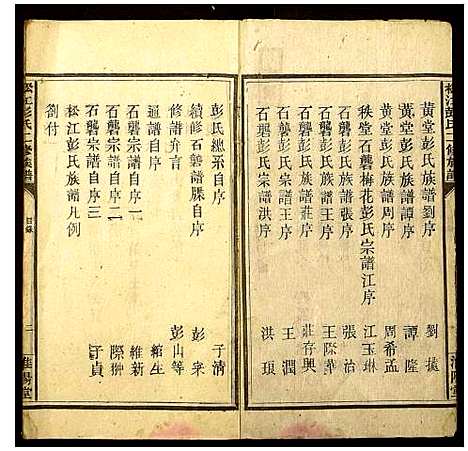 黄堂彭氏族譜劉序
黄堂彭氏族譜譚序 譚隆
黄堂彭氏族譜周序 周希孟
秩堂石礱梅花彭氏宗譜江序 江玉琳
石礱彭氏族譜張序 張治
石礱彭氏族譜王序 王際華
石礱彭氏族譜莊序 莊存興
石礱彭氏宗譜王序 王澗
石礱彭氏宗譜洪序 洪琅
彭氏總系自序 于清
續修石礱譜牒自序 彭來
修譜弁言 彭山等
通譜自序 綰生
石礱宗譜自序一 維新
石礱宗譜自序二 際翀
石礱宗譜自序三 于貞
松江彭氏族譜凡例
劉付
松江彭氏二修族譜
目錄
二
淮陽堂